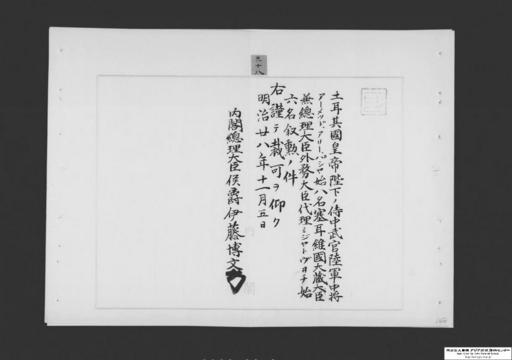 九十八
土耳其國皇帝陛下ノ侍中武官陸軍中将
アーメッド、アリー、パシヤ始八名塞耳維國大蔵大臣
兼總理大臣外務大臣代理ミジヤトヴヰチ始
六名叙勲ノ件
右謹テ裁可ヲ仰ク
明治廿八年十一月五日
内閣總理大臣侯爵伊藤博文